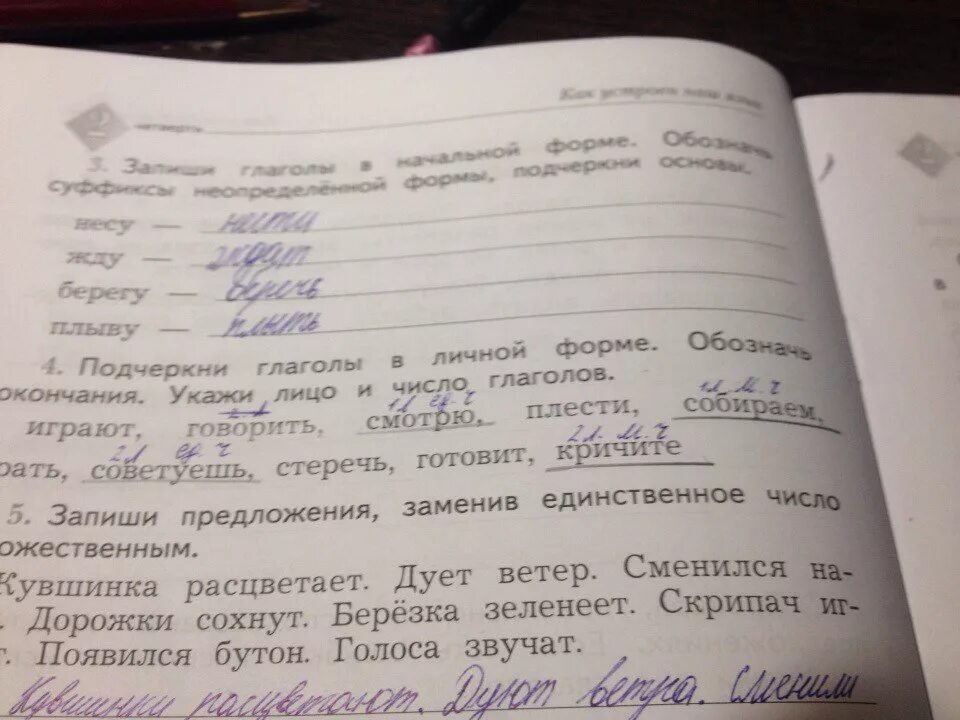 Как устроен наш язык
2 четверть 2
3. Запиши глаголы в начальной форме. Обозначь
суффиксы неопределённой формы, подчеркни основы.
несу — нести
жду —
берегу — беречь
плыву — плыть
4. Подчеркни глаголы в личной форме. Обозначь
окончания. Укажи лицо и число глаголов.
1л. ед. ч 1л. м. ч
играют, говорить, смотрю, плести, собираем,
2л ед. ч 2л. м. ч
рать, советуешь, стеречь, готовит, кричите
5. Запиши предложения, заменив единственное число
ожественным.
Кувшинка расцветает. Дует ветер. Сменился на-
. Дорожки сохнут. Берёзка зеленеет. Скрипач иг-
т. Появился бутон. Голоса звучат.
Кувшинки расцветают. Дуют ветра. Сменили
в